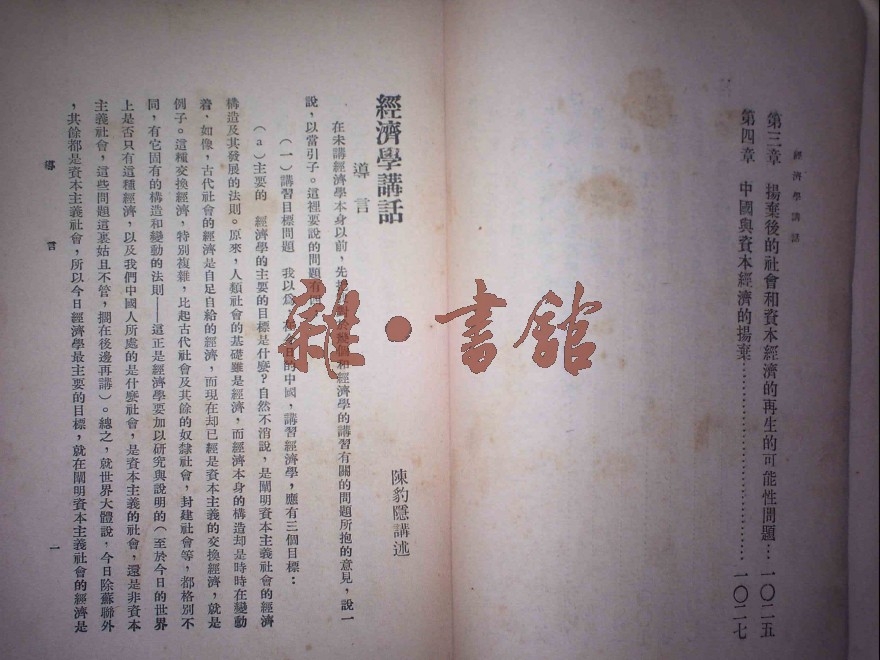 經濟學講話
第三章　揚棄後的社會和資本經濟的再生的可能性問題…一〇二五
第四章　中國與資本經濟的揚棄……………………一〇二七
經濟學講話
陳豹隱講述
導言
在未講經濟學本身以前，先
和經濟學的講習有關的問題所抱的意見，說一
說，以當引子。這裡要說的問題有四
（一）講習目標問題　我以爲
的中國，講習經濟學，應有三個目標：
（a）主要的　經濟學的主要的目標是什麽？自然不消說，是闡明資本主義社會的經濟
構造及其發展的法則。原來，人類社會的基礎雖是經濟，而經濟本身的構造却是時時在變動
着，如像，古代社會的經濟是自足自給的經濟，而現在却已經是資本主義的交換經濟，就是
例子。這種交換經濟，特別複雜，比起古代社會及其餘的奴隸社會，封建社會等，都格別不
同，有它固有的構造和變動的法則——這正是經濟學要加以研究與說明的（至於今日的世界
上是否只有這種經濟，以及我們中國人所處的是什麽社會，是資本主義的社會，還是非資本
主義社會，這些問題這裏姑且不管，擱在後邊再講）。總之，就世界大體說，今日除蘇聯外
，其餘都是資本主義社會，所以今日經濟學最主要的目標，就在闡明資本主義社會的經濟是
導言
一
雜·書館